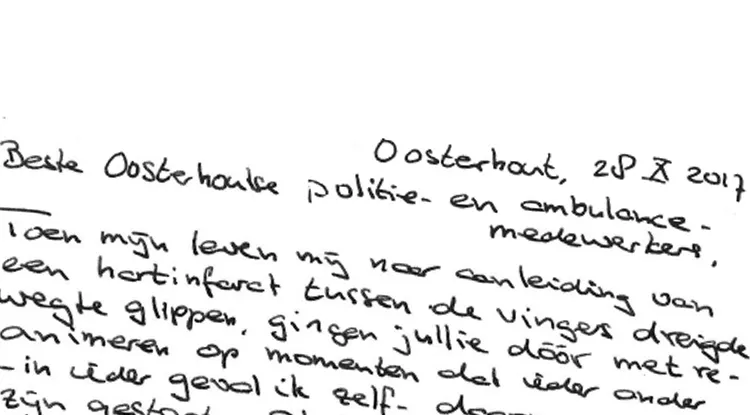 Oosterhout, 28 X 2017
Beste Oosterhoutse politie- en ambulance-
medewerkers,
Toen mijn leven mij naar aanleiding van
een hartinfarct tussen de vingers dreigde
wegte glippen, gingen jullie dóór met re-
animeren op momenten dat ieder ander
-in ieder geval ik zelf- daar
zijn gestopt.